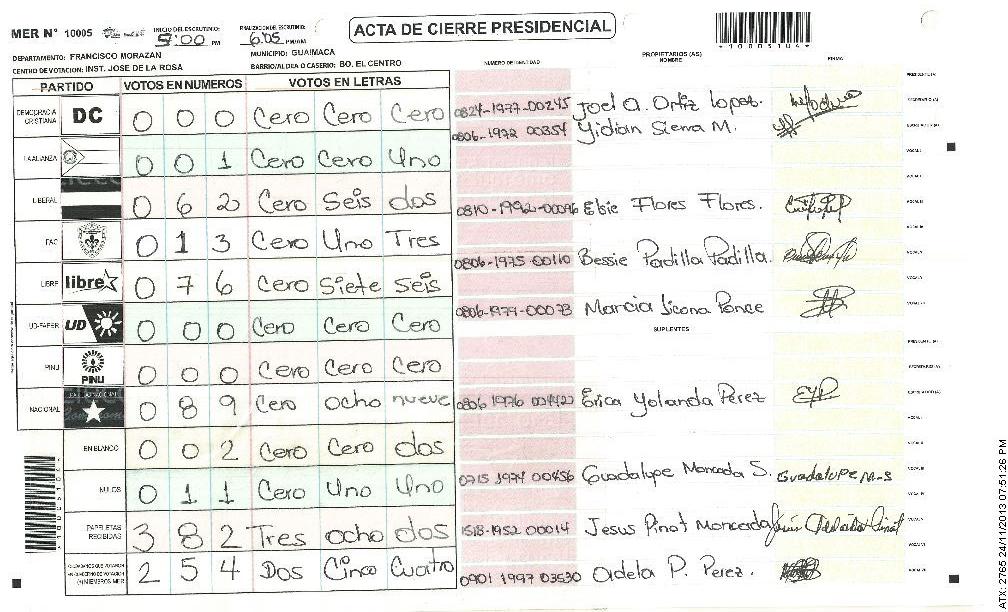 MER N° 10005 INICIO DEL ESCRUTINIO: 5:00 PM FINALIZACION DEL ESCRUTINIO: 6:05 PM/AM
ACTA DE CIERRE PRESIDENCIAL
DEPARTAMENTO: FRANCISCO MORAZAN MUNICIPIO: GUAIMACA
CENTRO DE VOTACION: INST. JOSE DE LA ROSA BARRIO/ALDEA O CASERIO: BO. EL CENTRO
NUMERO DE IDENTIDAD PROPIETARIOS (AS) NOMBRE FIRMA
PARTIDO VOTOS EN NUMEROS VOTOS EN LETRAS
DEMOCRACIA CRISTIANA DC 0 0 0 Cero Cero Cero
LA ALIANZA 0 0 1 Cero Cero Uno
LIBERAL 0 6 2 Cero Seis dos
PAC 0 1 3 Cero Uno Tres
LIBRE libre 0 7 6 Cero Siete seis
UD-FAPER UD 0 0 0 Cero Cero Cero
PINU PINU 0 0 0 Cero Cero Cero
NACIONAL 0 8 9 Cero ocho nueve
EN BLANCO 0 0 2 Cero Cero dos
NULOS 0 1 1 Cero Uno Uno
PAPELETAS RECIBIDAS 3 8 2 Tres ocho dos
CIUDADANOS QUE VOTARON EN CUADERNO DE VOTACION (+) MIEMBROS MER 2 5 4 Dos Cinco Cuatro
0824-1977-00245 Joel A. Ortiz Lopez.
0806-1972 00354 Yidian Sierra M.
0810-1992-00096 Elsie Flores Flores.
0806-1975-00110 Bessie Padilla Padilla.
0806-1979-00073 Marcia Licona Ponce
SUPLENTES
0806 1976 00442 Erica Yolanda Perez EYP.
0715 1974 00456 Guadalupe Moncada S. Guadalupe M-S
1518-1952 00014 Jesus Pinot Moncada
0901 1997 03530 Adela P. Perez.
ATX: 2765 24/11/2013 07:51:26 PM